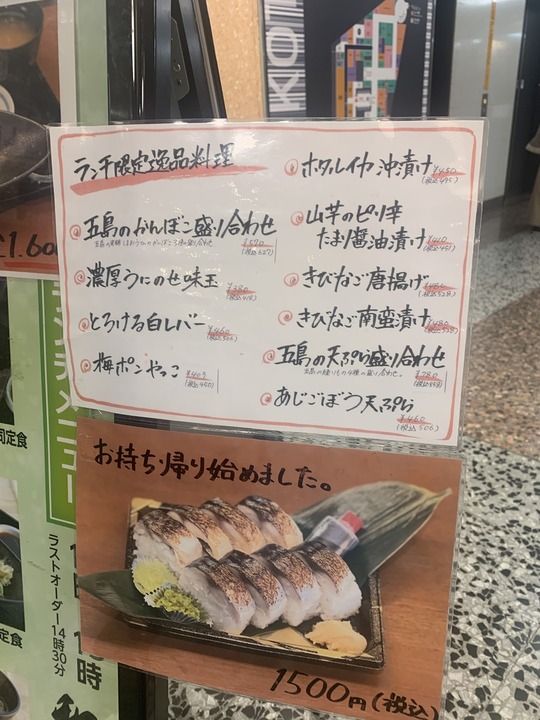 KOT
ランチ限定逸品料理
五島のかんぼこ盛り合わせ
¥570
(税込627)
濃厚うにのせ味玉
¥380
(税込418)
とろける白レバー
¥460
(税込506)
梅ポンやっこ
(税込450)
ホタルイカ沖漬け
¥450
(税込495)
山芋のピリ辛
たまり醤油漬け
¥410
(税込451)
きびなご唐揚げ
¥480
(税込528)
きびなご南蛮漬け
¥480
(税込528)
五島の天ぷら盛り合わせ
五島の練りもの4種の盛り合わせ。
¥780
(税込858)
あじごぼう天ぷら
¥460
(税込506)
お持ち帰り始めました。
1500円(税込)
1.60
ランチメニュー
ラストオーダー14時30分
時
司定食
定食